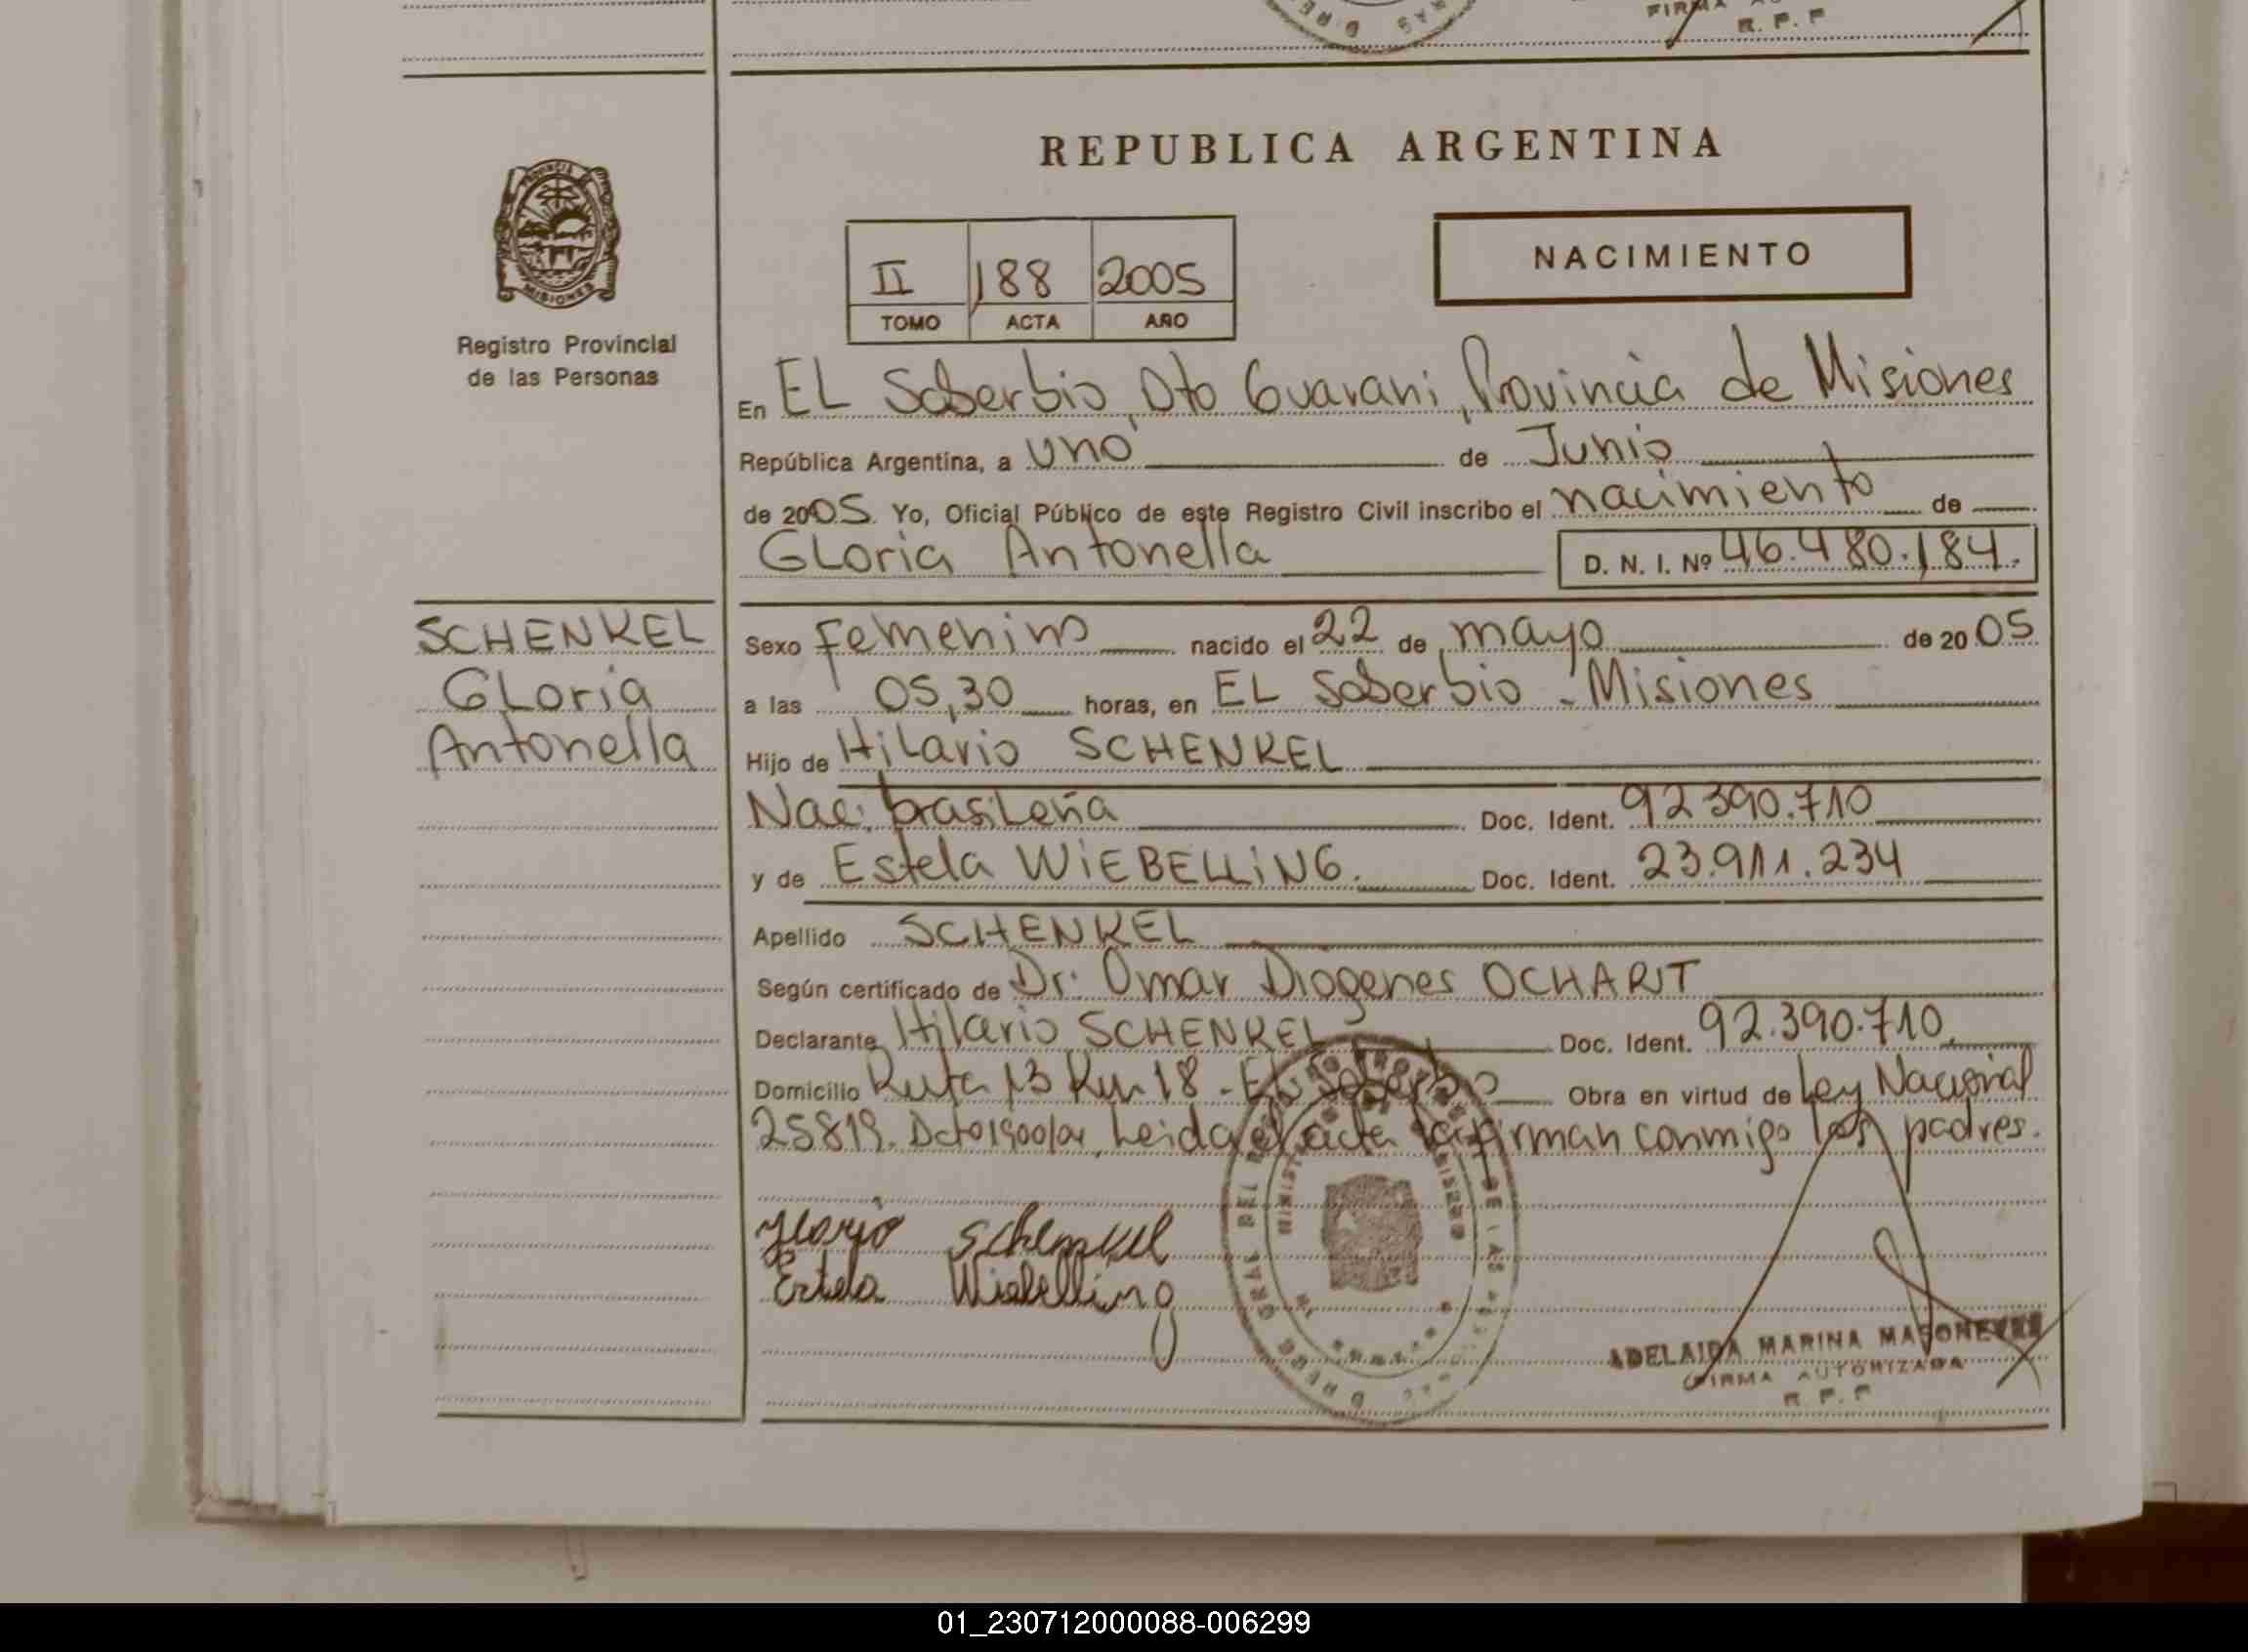 FIRMA
R. P. P
REPUBLICA ARGENTINA
PROVINCIA
MISIONES
Registro Provincial
de las Personas
II 188 2005
TOMO ACTA AÑO
NACIMIENTO
En EL Soberbio, Dto Guarani, Provincia de Misiones
República Argentina, a uno de Junio
de 2005. Yo, Oficial Público de este Registro Civil inscribo el nacimiento de
GLoria Antonella D. N. I. Nº 46.480.184.
SCHENKEL
GLoria
Antonella
Sexo Femenino nacido el 22 de mayo de 20 05
a las 05,30 horas, en EL Soberbio - Misiones
Hijo de HiLario SCHENKEL
Nac. brasiLeña Doc. Ident. 92 390.710
y de Estela WiEBELLiNG. Doc. Ident. 23.911.234
Apellido SCHENKEL
Según certificado de Dr. Omar Diogenes OCHARIT
Declarante Hilario SCHENKEL Doc. Ident. 92.390.710
Domicilio Ruta 13 Km 18 - EL Soberbio Obra en virtud de Ley Nacional
25819. Dcto 1900/04, Leida el acta la firman conmigo los padres.
Ilario Schenkel
Estela Wiebelling
ADELAIDA MARINA
FIRMA AUTORIZADA
R. P. P
01_230712000088-006299